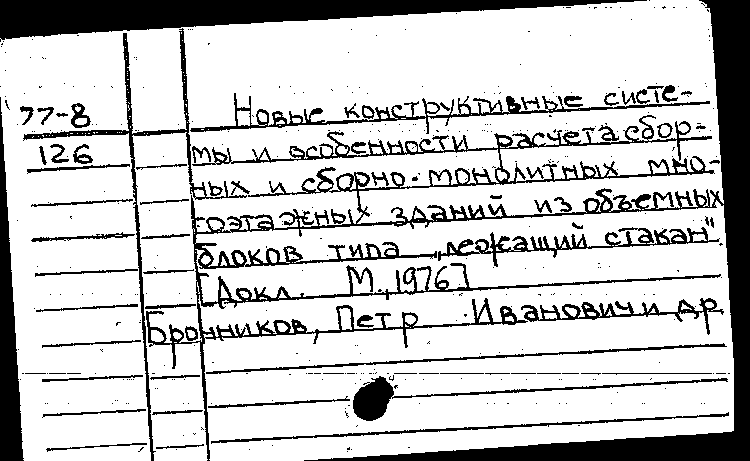 77-8 Новые конструктивные систе-
126 мы и особенности расчета сбор-
ных и сборно-монолитных мно-
гоэтажных зданий из объемных
блоков типа „лежащий стакан"
[Докл. М., 1976]
Бронников, Петр Иванович и др.